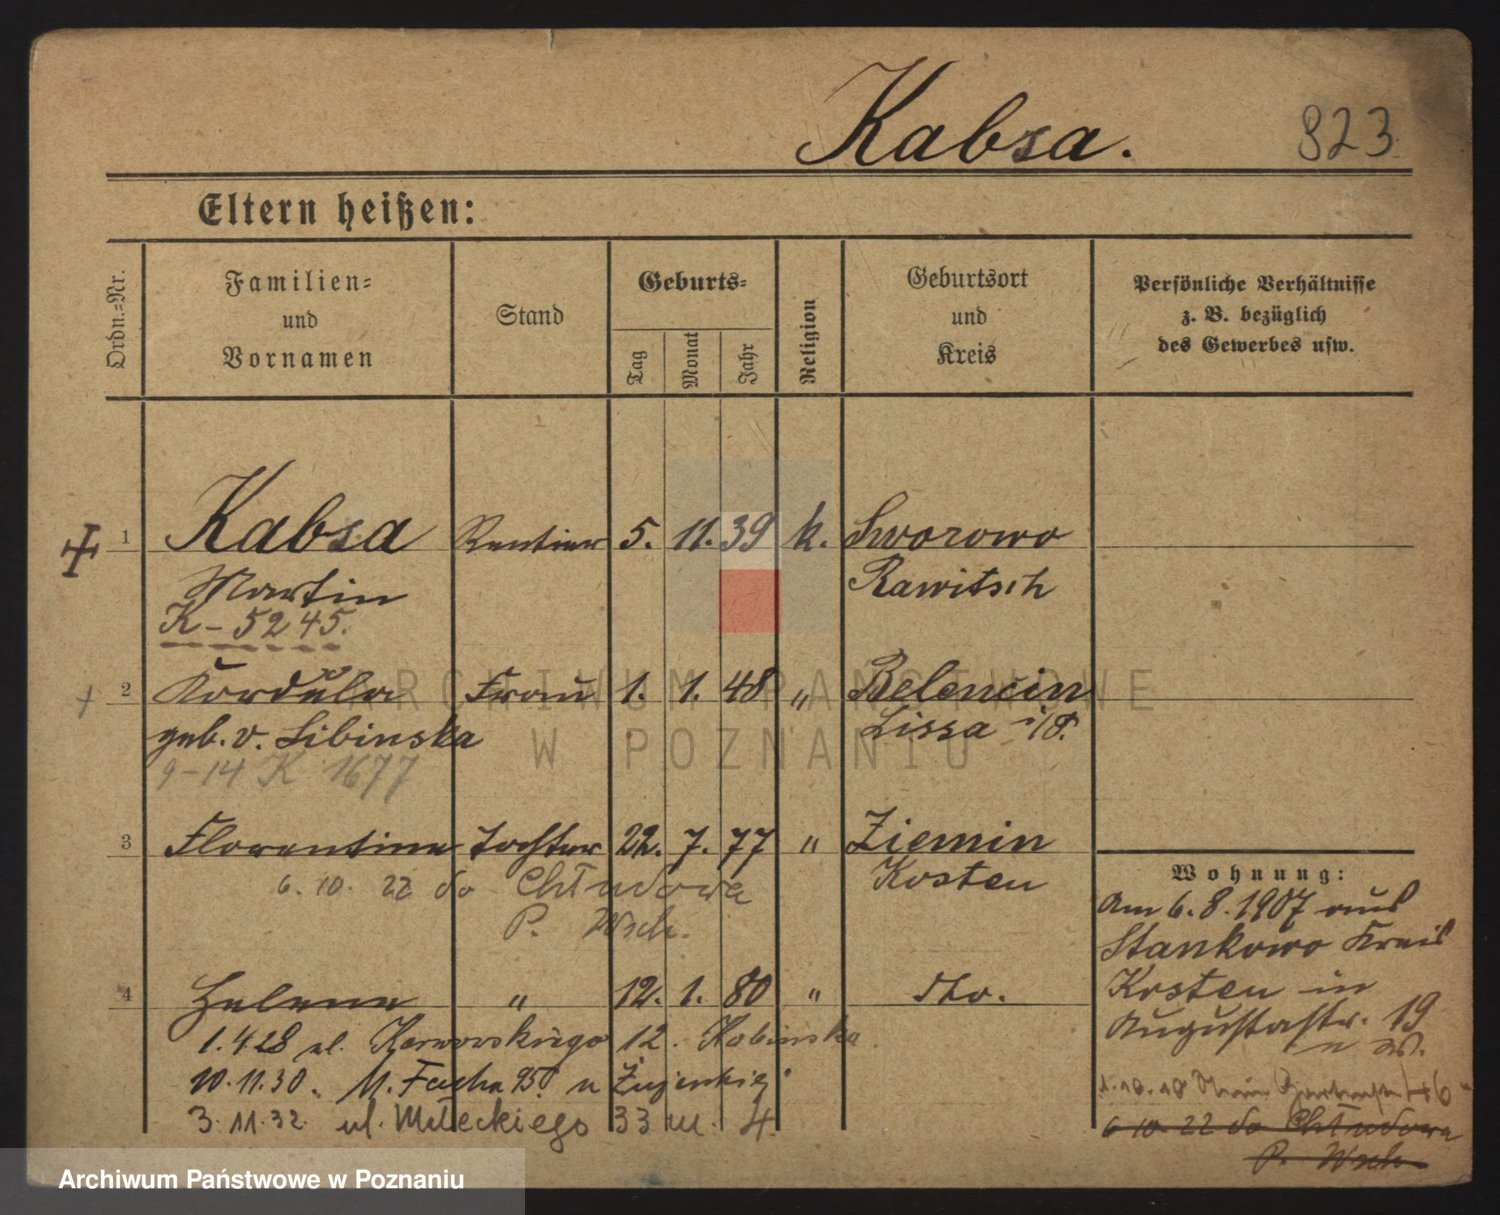 Kabsa. 823
Eltern heißen:
Ordn.-Nr.
Familien- und Vornamen
Stand
Geburts-
Tag Monat Jahr
Religion
Geburtsort und Kreis
Persönliche Verhältnisse z. B. bezüglich des Gewerbes usw.
1 Kabsa Rentier 5. 11. 39 k. Sworowo
Martin Rawitsch
K-5245.
2 Kordula Frau 1. 1. 48 " Belencin
geb. v. Libinska Lissa i/P.
9-14 K 1677
3 Florentine Tochter 22. 7. 77 " Ziemin
6. 10. 22 do Chłudowa Kosten
P. Wsch.
4 Helene " 12. 1. 80 " dto.
1.4 28 ul. Karwowskiego 12.
10.11.30. M. Focha
3.11.32 ul. Małeckiego 33 m. 4
Wohnung:
Am 6.8.1907 aus
Stankowo Kreis
Kosten in
Augustastr. 19
1.10.10
6 10. 22 do Chłudowa
P. Wsch.
ARCHIWUM PAŃSTWOWE
W POZNANIU
Archiwum Państwowe w Poznaniu